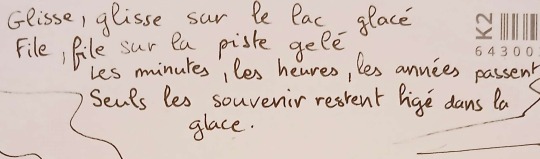 Glisse, glisse sur le lac glacé
File, file sur la piste gelé
Les minutes, les heures, les années passent
Seuls les souvenir restent figé dans la
glace.
K2
64300